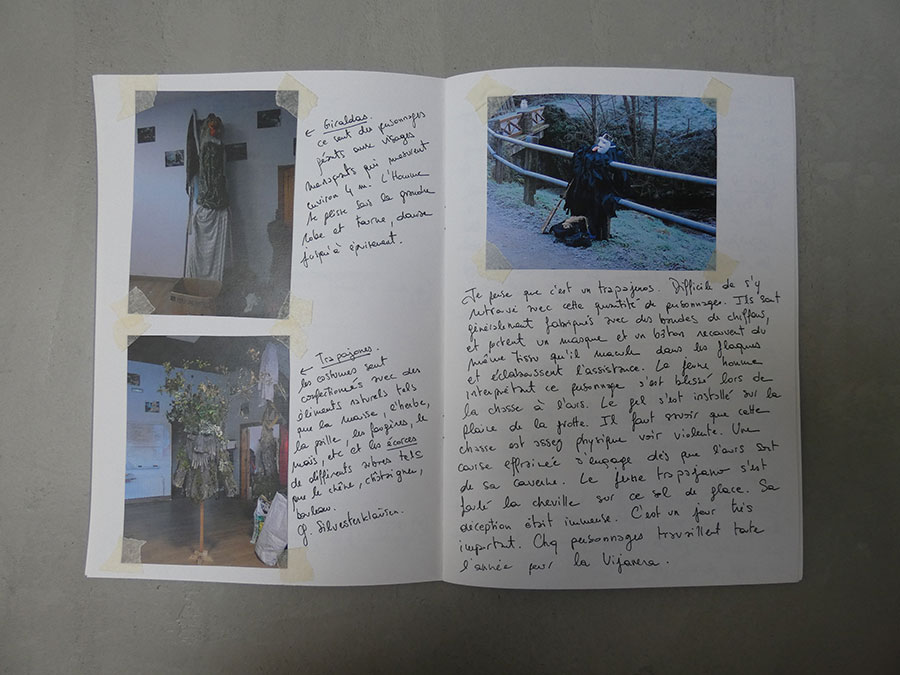 ← Giraldas.
ce sont des personnages
géants aux visages
menaçants qui mesurent
environ 4 m. L'Homme
se glisse sous la grande
robe et tourne, danse
jusqu'à épuisement.
← Trapajones.
les costumes sont
confectionnés avec des
éléments naturels tels
que la mousse, l'herbe,
la paille, les fougères, le
maïs, etc et les écorces
de différents arbres tels
que le chêne, châtaigner,
bouleau.
Cf. Silvesterkläusen.
Je pense que c'est un trapajeros. Difficile de s'y
retrouvé avec cette quantité de personnages. Ils sont
généralement fabriqués avec des bandes de chiffons,
et portent un masque et un bâton recouvert du
même tissu qu'il macule dans les flaques
et éclaboussent l'assistance. Le jeune homme
interprétant ce personnage s'est blessé lors de
la chasse à l'ours. Le gel s'est installé sur la
plaine de la grotte. Il faut savoir que cette
chasse est assez physique voir violente. Une
course effrainée s'engage dès que l'ours sort
de sa caverne. Le jeune trapajano s'est
foulé la cheville sur ce sol de glace. Sa
déception était immense. C'est un jour très
important. Chq personnages travaillent toute
l'année pour la Vijanera.